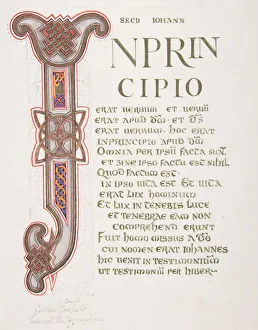 SECD IOHANN
INPRIN
CIPIO
ERAT UERBUM ET UERBŪ
ERAT APUD DM̄ · ET D̄S
ERAT UERBUM · HOC ERAT
INPRINCIPIO APUD DM̄
OMNIA PER IPSŪ FACTA SUNT
ET SINE IPSO FACTŪ EST NIHIL
QUOD FACTUM EST ·
IN IPSO UITA EST ET UITA
ERAT LUX HOMINUM
ET LUX IN TENEBIS LUCE
ET TENEBRAE EAM NON
COMPREHEND ERUNT
FUIT HOMO MISSUS A DŌ
CUI NOMEN ERAT IOHANNES
HIC UENIT IN TESTIMONIUM
UT TESTIMONIUM PER HIBER